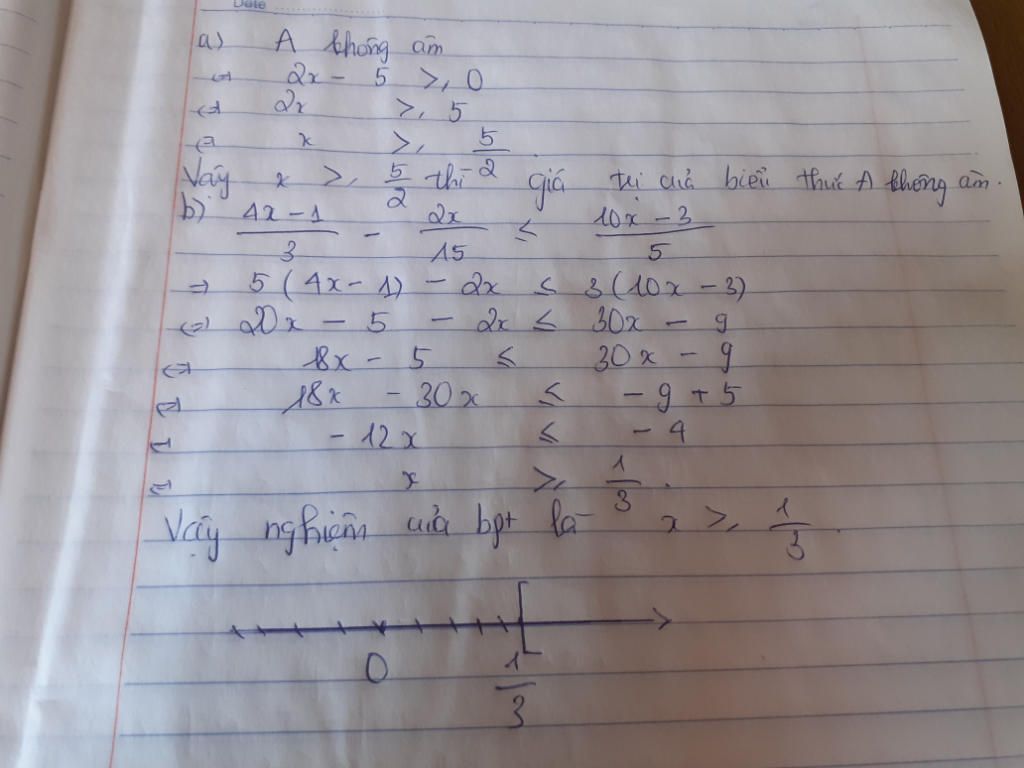 Date
a) A không âm
<=> 2x - 5 ≥ 0
<=> 2x ≥ 5
<=> x ≥ 5/2
Vậy x ≥ 5/2 thì giá trị của biểu thức A không âm.
b) (4x - 1)/3 - 2x/15 ≤ (10x - 3)/5
=> 5(4x - 1) - 2x ≤ 3(10x - 3)
<=> 20x - 5 - 2x ≤ 30x - 9
<=> 18x - 5 ≤ 30x - 9
<=> 18x - 30x ≤ -9 + 5
<=> -12x ≤ -4
<=> x ≥ 1/3.
Vậy nghiệm của bpt là x ≥ 1/3.
0 1/3